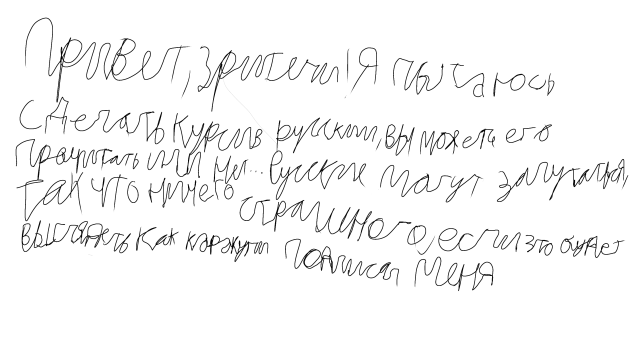 Привет, зрители! Я пытаюсь
сделать курсив русский, вы можете его
прочитать или нет... Русские могут запутаться,
так что ничего страшного, если это будет
выглядеть как каракули Подписан меня